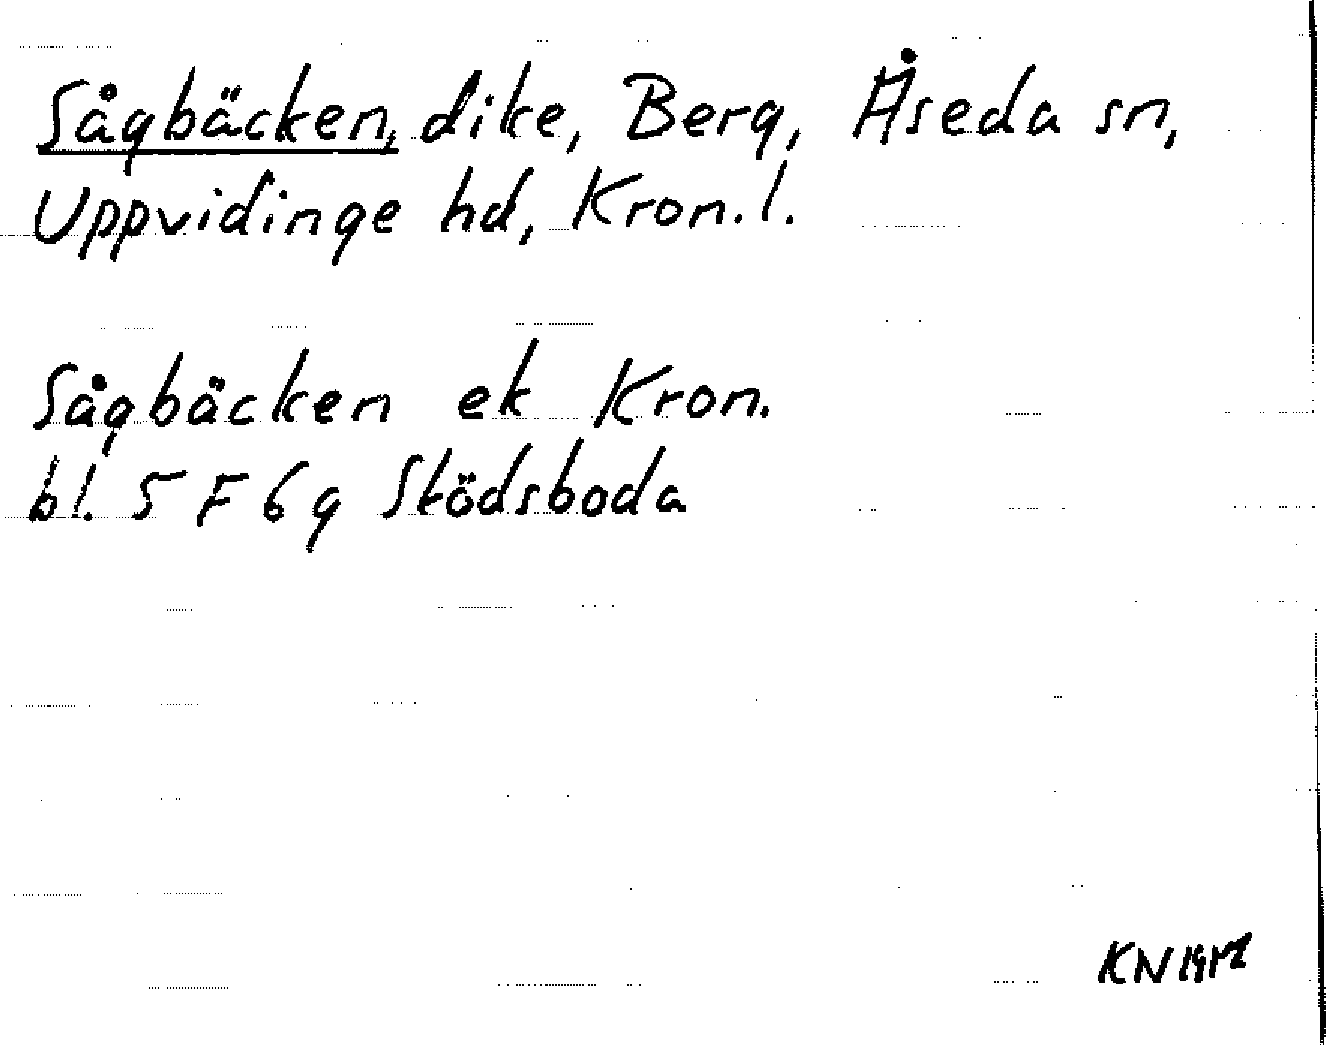 Sågbäcken, dike, Berg, Åseda sn,
Uppvidinge hd, Kron.l.
Sågbäcken ek Kron.
bl. 5 F 6 g Stödsboda
KN